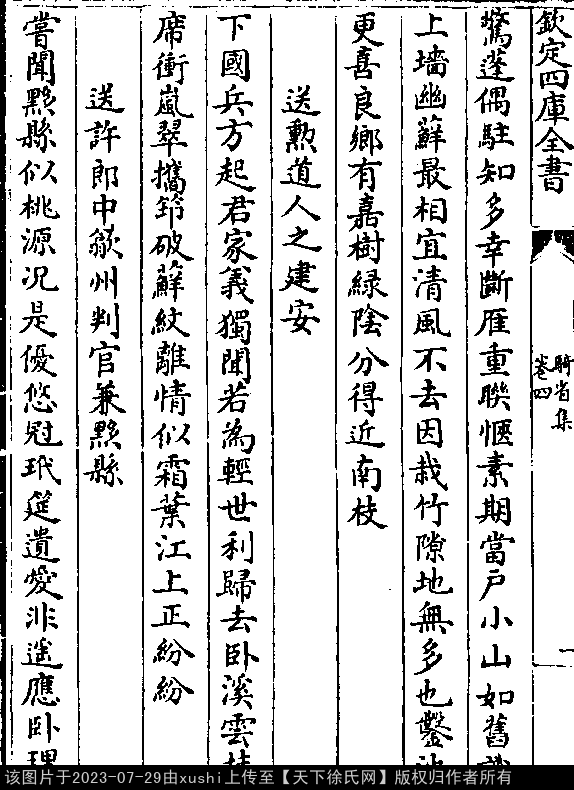 欽定四庫全書
騎省集
卷四
驚蓬偶駐知多幸斷雁重聯愜素期當戶小山如舊
上墻幽蘚最相宜清風不去因栽竹隙地無多也鑿
更喜良鄉有嘉樹綠陰分得近南枝
送勲道人之建安
下國兵方起君家義獨聞若為輕世利歸去卧溪雲
席衝嵐翠攜筇破蘚紋離情似霜葉江上正紛紛
送許郎中歙州判官兼黟縣
嘗聞黟縣似桃源况是優悠冠玳筵遺愛非遥應卧
该图片于2023-07-29由xushi上传至【天下徐氏网】版权归作者所有